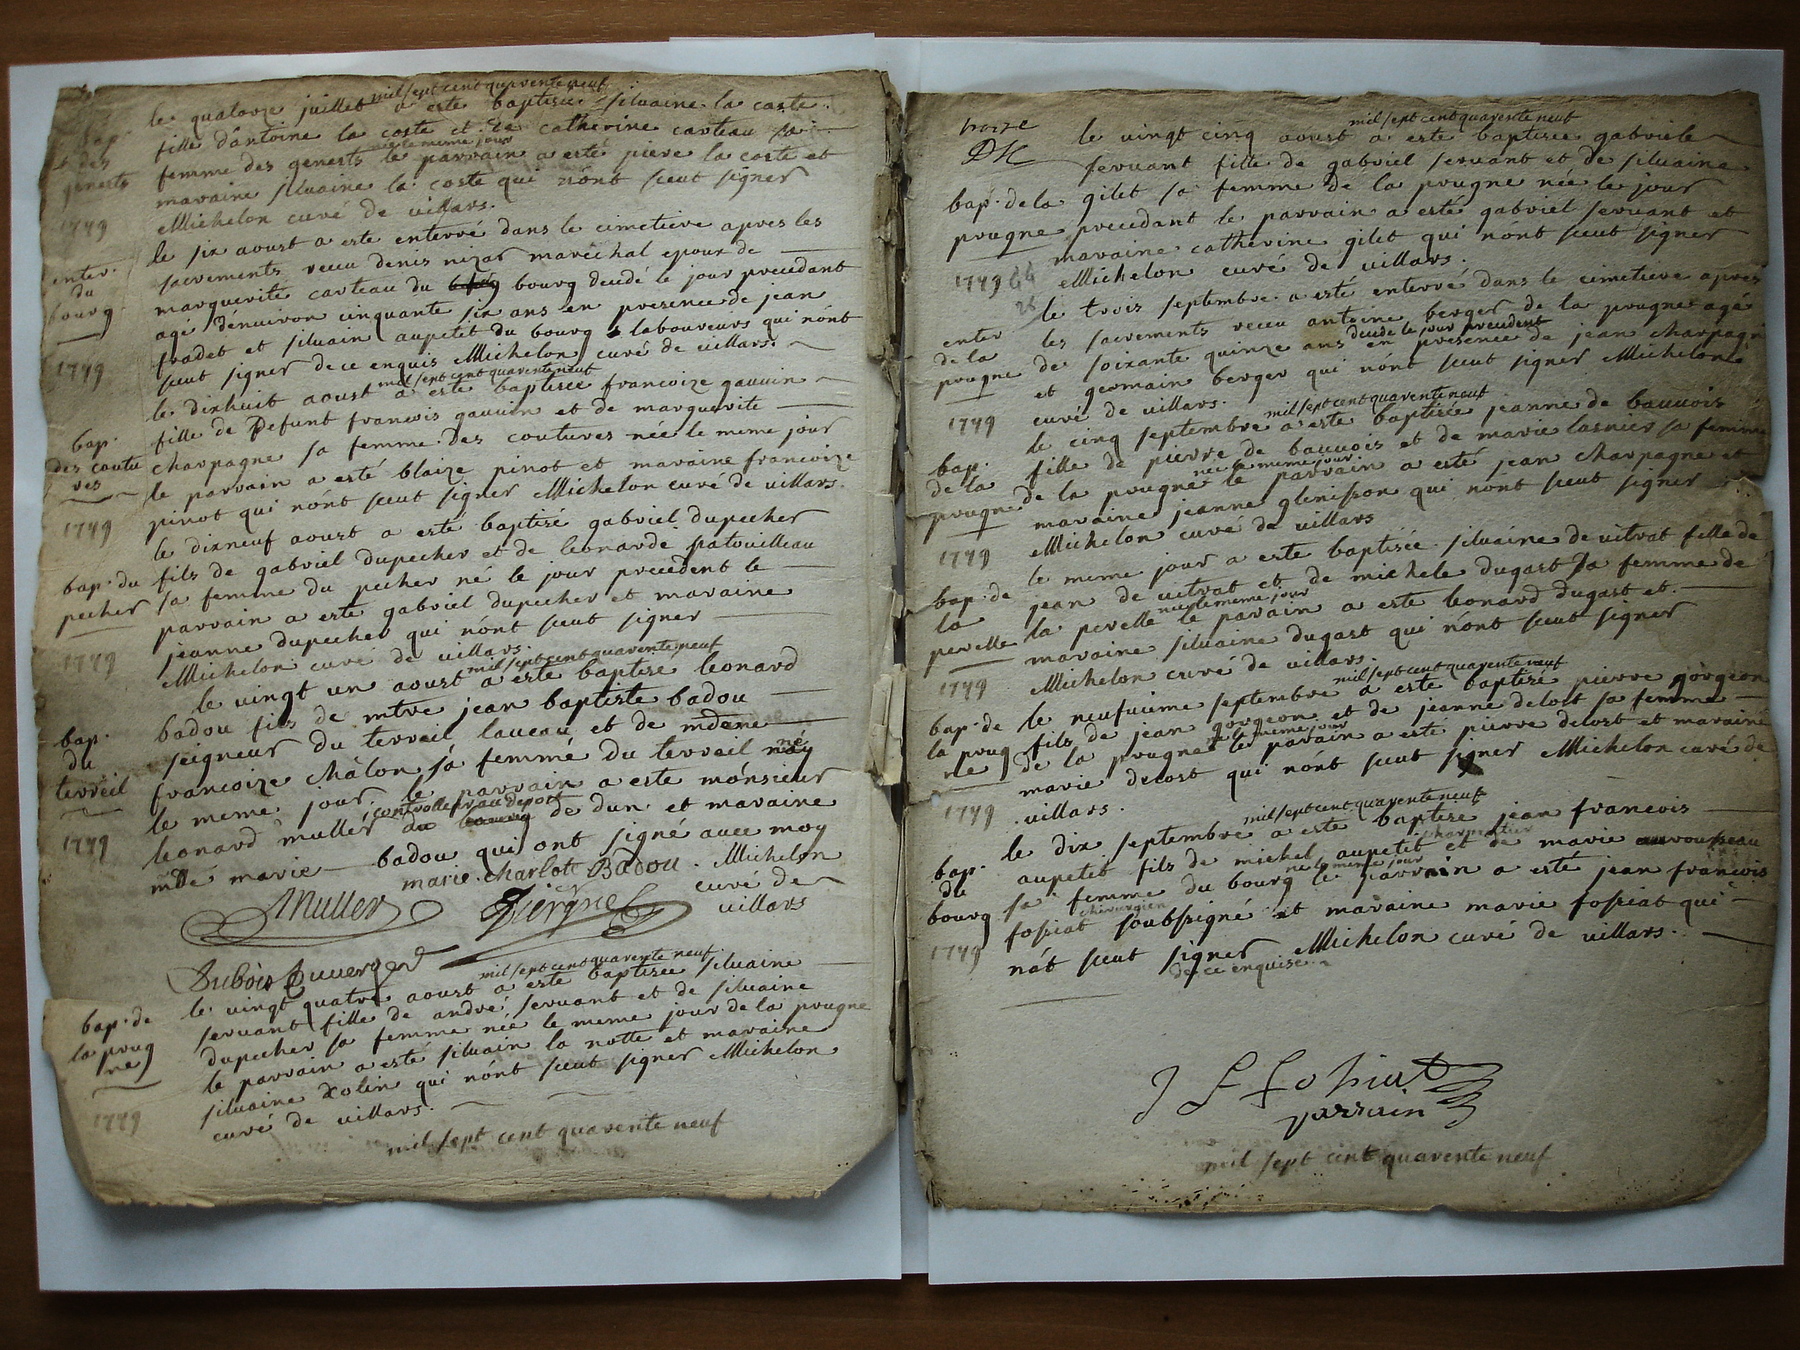 mil sept cent quarente neuf
le quatorze juillet a este baptisée silvaine la coste
bap.
fille d'antoine la coste et de catherine carteau sa
et des
née le meme jour
femme des genests le parrain a esté piere la coste et
genests
maraine silvaine la coste qui n'ont sceut signer
1749
Michelon curé de villars.
le six aoust a este enterré dans le cimetiere apres les
enter.
sacrements receu denis nizar maréchal epoux de
du
marguerite carteau du bourg decedé le jour precedant
bourg
agé d'enuiron cinquante six ans en presence de jean
fradet et silvain aupetit du bourg laboureurs qui n'ont
1749
sceut signer de ce enquis Michelon curé de villars.
mil sept cent quarente neuf
le dixhuit aoust a este baptisée francoize gauvin
fille de Defunt francois gauvin et de marguerite
bap.
charpagne sa femme des coutures née le meme jour
des coutu
res
le parrain a esté blaize pinot et maraine francoize
1749
pinot qui n'ont sceut signer Michelon curé de villars.
le dixneuf aoust a este baptisé gabriel dupecher
bap. du
fils de gabriel dupecher et de leonarde patouilleau
pecher
sa femme du pecher né le jour precedent le
parrain a este gabriel dupecher et maraine
jeanne dupecher qui n'ont sceut signer
1749
Michelon curé de villars.
mil sept cent quarente neuf
le vingt un aoust a este baptisé leonard
badou fils de mtre jean baptiste badou
bap.
seigneur du terreil laueau et de mdame
du
francoize châlon sa femme du terreil né
terreil
le meme jour le parrain a este monsieur
controlleur au depost
leonard muller de dun et maraine
1749
mlle marie badou qui ont signé avec moy
marie charlot Badou Michelon
Muller
curé de
villars
Dubois Duverger
mil sept cent quarente neuf
le vingt quatre aoust a este baptisée silvaine
bap. de
servant fille de andré servant et de silvaine
la proug
dupecher sa femme née le meme jour de la prougne
ne
le parrain a esté silvain la notte et maraine
silvaine colin qui n'ont sceut signer Michelon
1749
curé de villars.
mil sept cent quarente neuf
mil sept cent quarente neuf
le vingt cinq aoust a este baptisée gabriele
servant fille de gabriel servant et de silvaine
bap. de la
gilet sa femme de la prougne née le jour
prougne
precedant le parrain a esté gabriel servant et
maraine catherine gilet qui n'ont sceut signer
1749
Michelon curé de villars.
le trois septembre a esté enterré dans le cimetiere apres
enter
les sacrements receu antoine berger de la prougne agé
decedé le jour precedent
de la
de soixante quinze ans en presence de jean charpagne
prougne
et germain berger qui n'ont sceut signer Michelon
1749
curé de villars.
mil sept cent quarente neuf
le cinq septembre a este baptisée jeanne de bauvois
bap.
fille de pierre de bauvois et de marie lasnier sa femme
de la
née le meme jour
prougne
de la prougne le parrain a esté jean charpagne et
maraine jeanne glenisson qui n'ont sceut signer
1749
Michelon curé de villars
le meme jour a este baptisée silvaine de vitrat fille de
bap. de
jean de vitrat et de michele dugast sa femme de
la
née le meme jour
perelle
la perelle le parain a este leonard dugast et
maraine silvaine dugast qui n'ont sceut signer
1749
Michelon curé de villars.
mil sept cent quarente neuf
le neufuieme septembre a esté baptisé pierre gorgeon
bap. de
fils de jean gorgeon et de jeanne delost sa femme
la proug
né le meme jour
ne
de la prougne le parain a esté pierre delost et maraine
marie delost qui n'ont sceut signer Michelon curé de
1749
villars.
mil sept cent quarente neuf
le dix septembre a este baptisé jean francois
charpentier
bap.
aupetit fils de michel aupetit et de marie
né le meme jour
du
sa femme du bourg le parrain a este jean francois
bourg
chirurgien
fossiat soubsigné et maraine marie fossiat qui
1749
n'at sceut signer Michelon curé de villars.
de ce enquise
J F Fossiat
parrain
mil sept cent quarente neuf